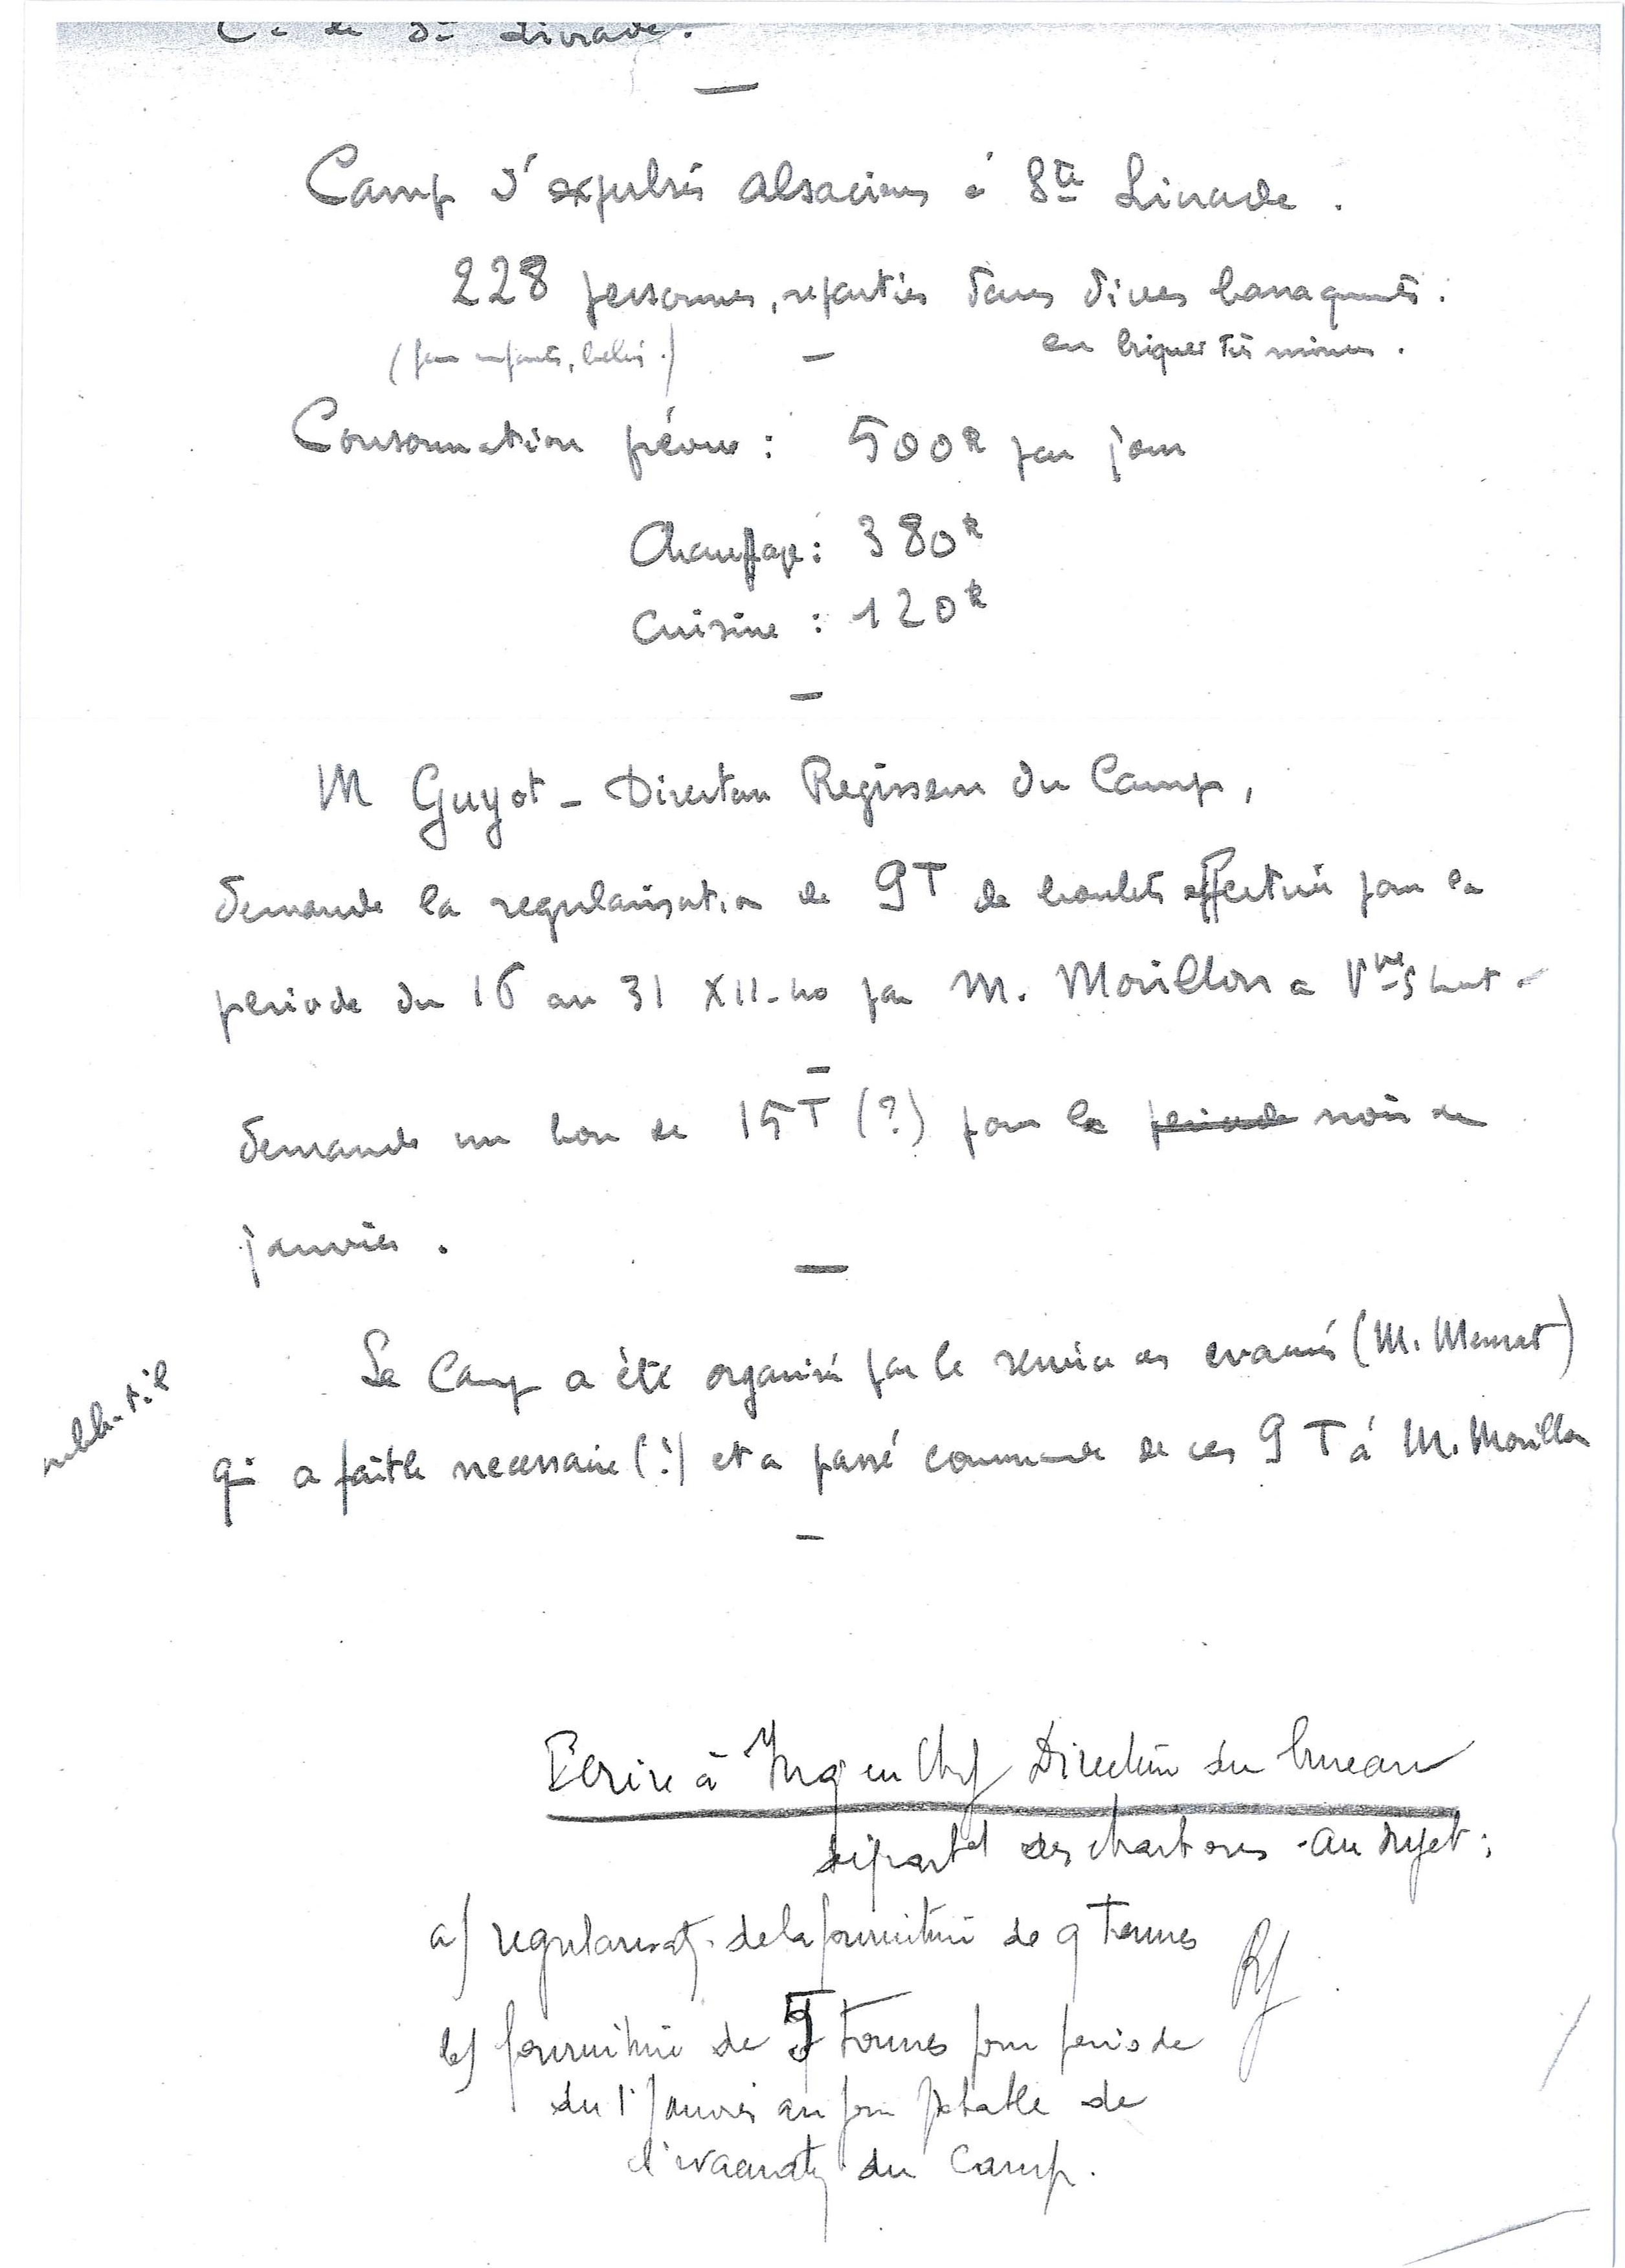 Camp d'expulsés alsaciens à Ste Livrade.
228 personnes, réparties dans divers baraquements.
(femmes, enfants, bébés.)
en briques très minces.
Consommation prévue : 500k par jour
Chauffage : 380k
Cuisine : 120k
M Guyot - Directeur Regisseur du Camp,
demande la regularisation de 9T de boulets effectuée pour la
periode du 16 au 31 XII-40 par M. Morillon a Vve S Lot -
demande un bon de 15T (?) pour le periode mois de
janvier.
Le Camp a été organisé par le service des evacués (M.
qui a fait le necessaire (?) et a passé commande de ces 9 T à M. Morillon
Ecrire à Ing en Chef Directeur du bureau
départal des charbons - au sujet :
a) regularisat. de la fourniture de 9 Tonnes
b) fourniture de Tonnes pour periode
du 1r Janvier au jour pbable de
l'évacuat. du Camp.